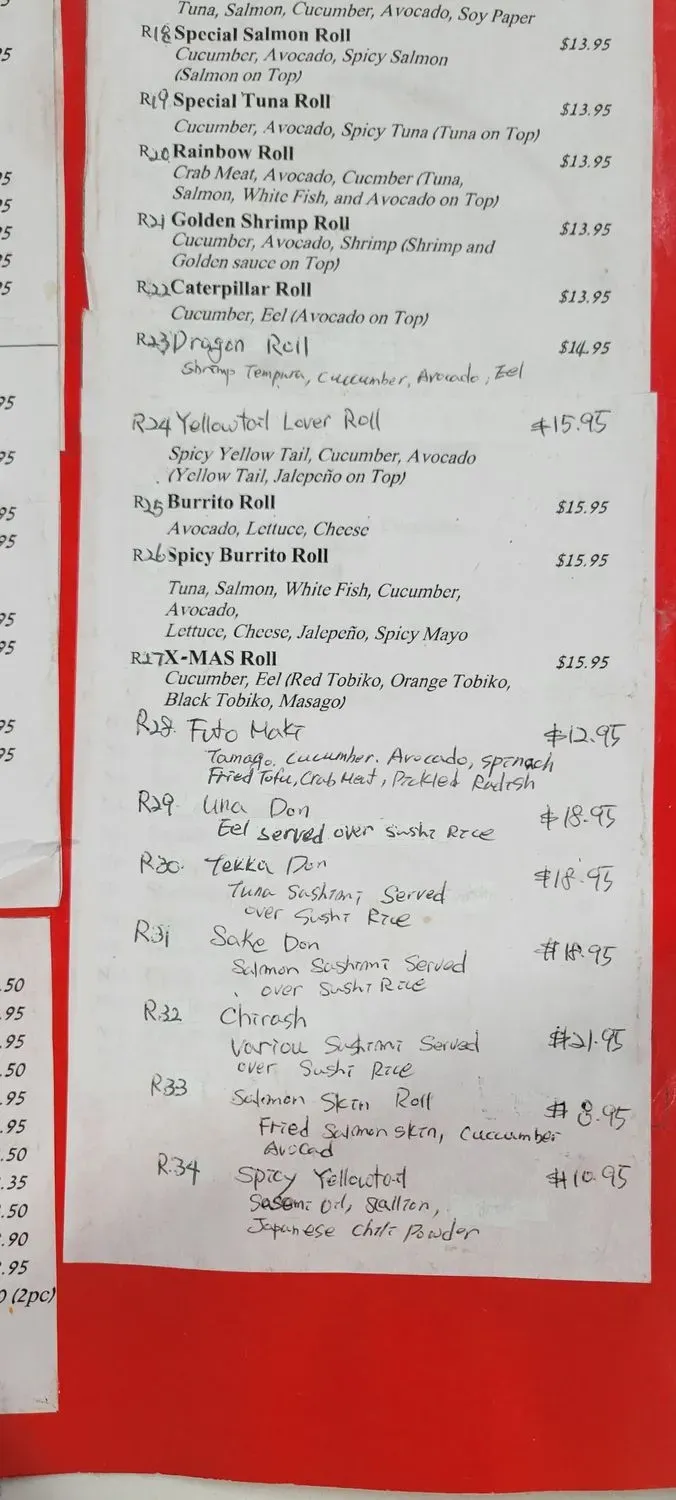 Tuna, Salmon, Cucumber, Avocado, Soy Paper
R18 Special Salmon Roll $13.95
Cucumber, Avocado, Spicy Salmon
(Salmon on Top)
R19 Special Tuna Roll $13.95
Cucumber, Avocado, Spicy Tuna (Tuna on Top)
R20 Rainbow Roll $13.95
Crab Meat, Avocado, Cucmber (Tuna,
Salmon, White Fish, and Avocado on Top)
R21 Golden Shrimp Roll $13.95
Cucumber, Avocado, Shrimp (Shrimp and
Golden sauce on Top)
R22 Caterpillar Roll $13.95
Cucumber, Eel (Avocado on Top)
R23 Dragon Roll $14.95
Shrimp Tempura, Cuccumber, Avocado, Eel
R24 Yellowtail Lover Roll $15.95
Spicy Yellow Tail, Cucumber, Avocado
(Yellow Tail, Jalepeño on Top)
R25 Burrito Roll $15.95
Avocado, Lettuce, Cheese
R26 Spicy Burrito Roll $15.95
Tuna, Salmon, White Fish, Cucumber,
Avocado,
Lettuce, Cheese, Jalepeño, Spicy Mayo
R27 X-MAS Roll $15.95
Cucumber, Eel (Red Tobiko, Orange Tobiko,
Black Tobiko, Masago)
R28. Futo Maki $12.95
Tamago, Cucumber. Avocado, spinach
Fried Tofu, Crab Meat, Pickled Radish
R29 Una Don $18.95
Eel served over Sushi Rice
R30. Tekka Don $18.95
Tuna Sashimi Served
over Sushi Rice
R31 Sake Don $18.95
Salmon Sashimi Served
over Sushi Rice
R32 Chirash $21.95
Variou Sushimi Served
over Sushi Rice
R33 Salmon Skin Roll $8.95
Fried Salmon skin, Cuccumber
Avocad
R.34 Spicy Yellowtail $10.95
Sasemi Oil, Scallion,
Japanese Chili Powder
5
5
5
5
5
5
95
95
95
95
95
95
95
95
.50
.95
.95
.50
.95
.95
.50
.35
.50
.90
.95
0 (2pc)